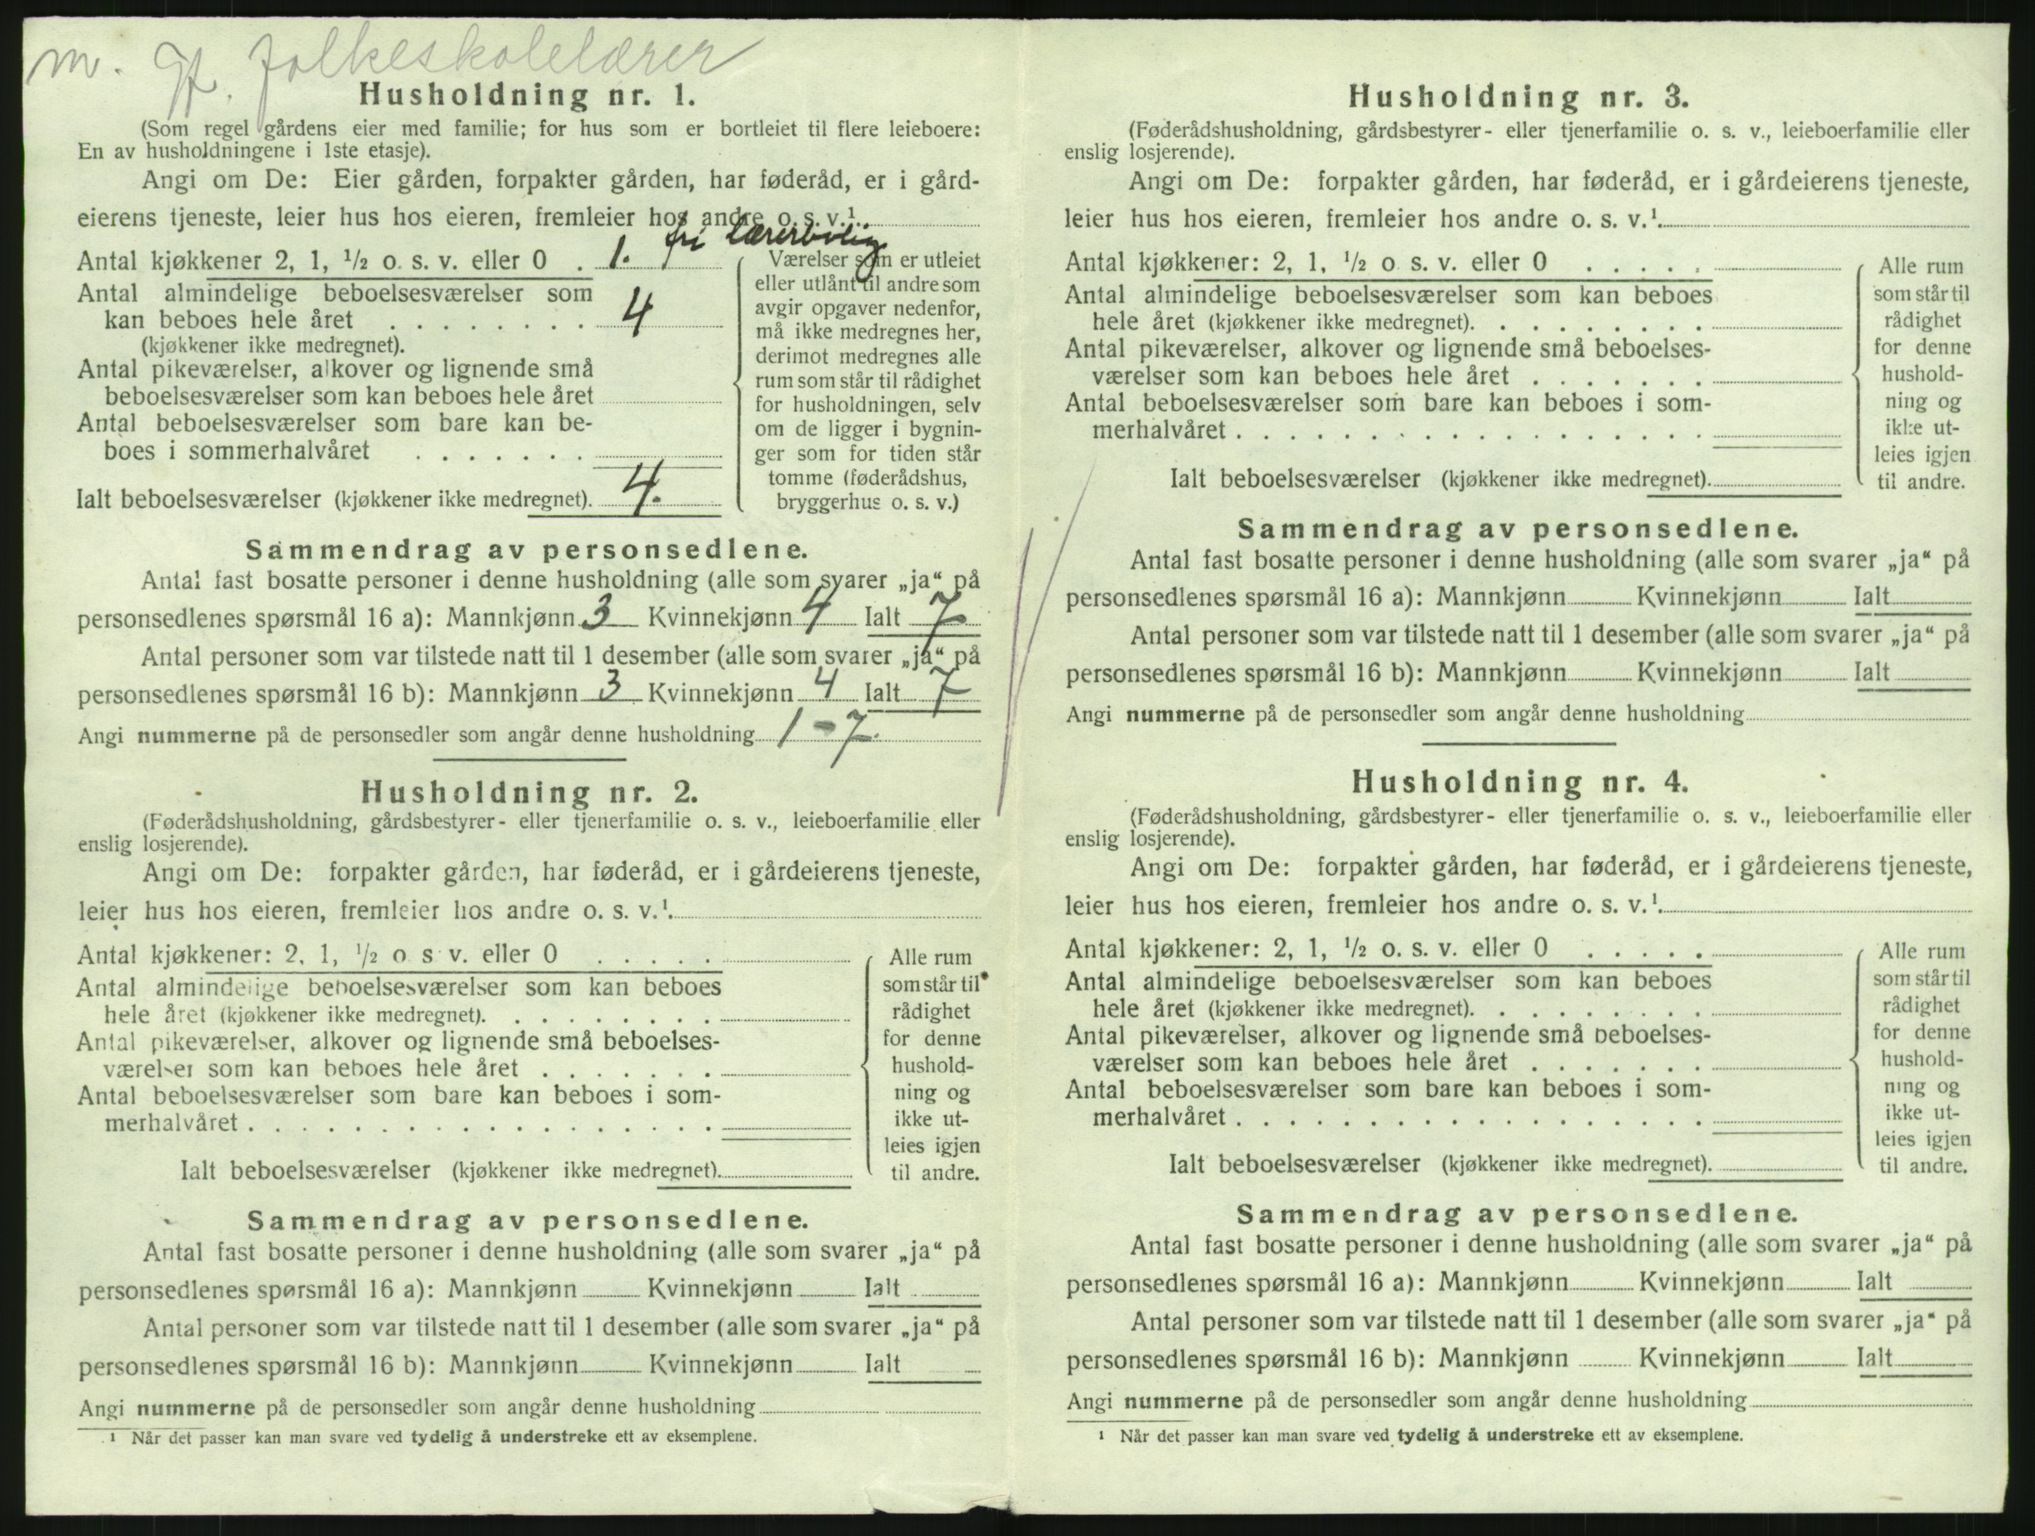 m. gf. folkeskolelærer
Husholdning nr. 1.
(Som regel gårdens eier med familie; for hus som er bortleiet til flere leieboere:
En av husholdningene i 1ste etasje).
Angi om De: Eier gården, forpakter gården, har føderåd, er i gård-
eierens tjeneste, leier hus hos eieren, fremleier hos andre o. s. v.¹
fri lærerbolig
Antal kjøkkener 2, 1, ½ o. s. v. eller 0 . 1.
Antal almindelige beboelsesværelser som
kan beboes hele året . . . . . . . . 4
(kjøkkener ikke medregnet).
Antal pikeværelser, alkover og lignende små
beboelsesværelser som kan beboes hele året
Antal beboelsesværelser som bare kan be-
boes i sommerhalvåret . . . . . . .
Ialt beboelsesværelser (kjøkkener ikke medregnet). 4.
Værelser som er utleiet
eller utlånt til andre som
avgir opgaver nedenfor,
må ikke medregnes her,
derimot medregnes alle
rum som står til rådighet
for husholdningen, selv
om de ligger i bygnin-
ger som for tiden står
tomme (føderådshus,
bryggerhus o. s. v.)
Sammendrag av personsedlene.
Antal fast bosatte personer i denne husholdning (alle som svarer „ja“ på
personsedlenes spørsmål 16 a): Mannkjønn 3 Kvinnekjønn 4 Ialt 7
Antal personer som var tilstede natt til 1 desember (alle som svarer „ja“ på
personsedlenes spørsmål 16 b): Mannkjønn 3 Kvinnekjønn 4 Ialt 7
Angi nummerne på de personsedler som angår denne husholdning 1-7.
Husholdning nr. 2.
(Føderådshusholdning, gårdsbestyrer- eller tjenerfamilie o. s. v., leieboerfamilie eller
enslig losjerende).
Angi om De: forpakter gården, har føderåd, er i gårdeierens tjeneste,
leier hus hos eieren, fremleier hos andre o. s. v.¹.
Antal kjøkkener: 2, 1, ½ o s v. eller 0 . . . . .
Antal almindelige beboelsesværelser som kan beboes
hele året (kjøkkener ikke medregnet). . . . . . . . .
Antal pikeværelser, alkover og lignende små beboelses-
værelser som kan beboes hele året . . . . . . .
Antal beboelsesværelser som bare kan beboes i som-
merhalvåret . . . . . . . . . . . . . . . . . .
Ialt beboelsesværelser (kjøkkener ikke medregnet).
Alle rum
som står til
rådighet
for denne
hushold-
ning og
ikke ut-
leies igjen
til andre.
Sammendrag av personsedlene.
Antal fast bosatte personer i denne husholdning (alle som svarer „ja“ på
personsedlenes spørsmål 16 a): Mannkjønn Kvinnekjønn Ialt
Antal personer som var tilstede natt til 1 desember (alle som svarer „ja“ på
personsedlenes spørsmål 16 b): Mannkjønn Kvinnekjønn Ialt
Angi nummerne på de personsedler som angår denne husholdning
¹ Når det passer kan man svare ved tydelig å understreke ett av eksemplene.
Husholdning nr. 3.
(Føderådshusholdning, gårdsbestyrer- eller tjenerfamilie o. s. v., leieboerfamilie eller
enslig losjerende).
Angi om De: forpakter gården, har føderåd, er i gårdeierens tjeneste,
leier hus hos eieren, fremleier hos andre o. s. v.¹.
Antal kjøkkener: 2, 1, ½ o s. v. eller 0 . . . . .
Antal almindelige beboelsesværelser som kan beboes
hele året (kjøkkener ikke medregnet). . . . . . . . .
Antal pikeværelser, alkover og lignende små beboelses-
værelser som kan beboes hele året . . . . . . .
Antal beboelsesværelser som bare kan beboes i som-
merhalvåret . . . . . . . . . . . . . . . . . .
Ialt beboelsesværelser (kjøkkener ikke medregnet).
Alle rum
som står til
rådighet
for denne
hushold-
ning og
ikke ut-
leies igjen
til andre.
Sammendrag av personsedlene.
Antal fast bosatte personer i denne husholdning (alle som svarer „ja“ på
personsedlenes spørsmål 16 a): Mannkjønn Kvinnekjønn Ialt
Antal personer som var tilstede natt til 1 desember (alle som svarer „ja“ på
personsedlenes spørsmål 16 b): Mannkjønn Kvinnekjønn Ialt
Angi nummerne på de personsedler som angår denne husholdning
Husholdning nr. 4.
(Føderådshusholdning, gårdsbestyrer- eller tjenerfamilie o. s. v., leieboerfamilie eller
enslig losjerende).
Angi om De: forpakter gården, har føderåd, er i gårdeierens tjeneste,
leier hus hos eieren, fremleier hos andre o. s. v.¹.
Antal kjøkkener: 2, 1, ½ o. s. v. eller 0 . . . . .
Antal almindelige beboelsesværelser som kan beboes
hele året (kjøkkener ikke medregnet). . . . . . . . .
Antal pikeværelser, alkover og lignende små beboelses-
værelser som kan beboes hele året . . . . . . .
Antal beboelsesværelser som bare kan beboes i som-
merhalvåret . . . . . . . . . . . . . . . . . .
Ialt beboelsesværelser (kjøkkener ikke medregnet).
Alle rum
som står til
rådighet
for denne
hushold-
ning og
ikke ut-
leies igjen
til andre.
Sammendrag av personsedlene.
Antal fast bosatte personer i denne husholdning (alle som svarer „ja“ på
personsedlenes spørsmål 16 a): Mannkjønn Kvinnekjønn Ialt
Antal personer som var tilstede natt til 1 desember (alle som svarer „ja“ på
personsedlenes spørsmål 16 b): Mannkjønn Kvinnekjønn Ialt
Angi nummerne på de personsedler som angår denne husholdning
¹ Når det passer kan man svare ved tydelig å understreke ett av eksemplene.